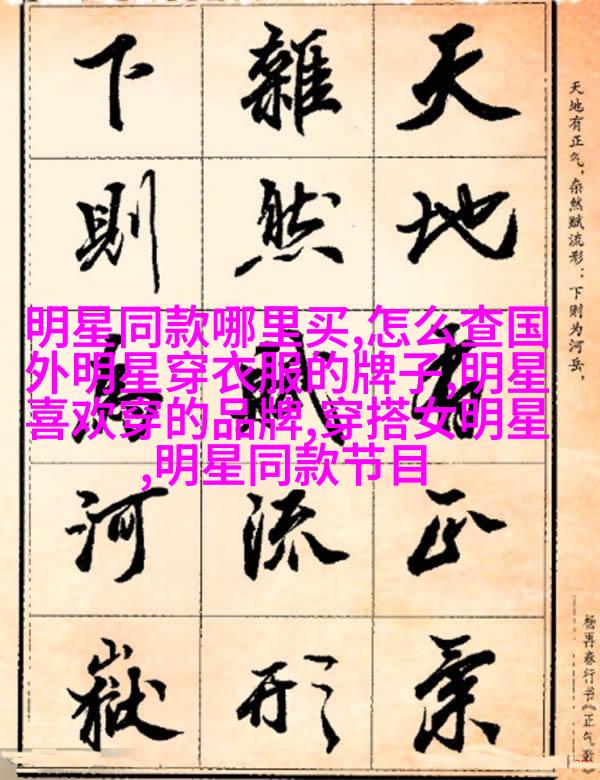 天地有正气，杂然赋流形：下则为河岳，
天地有正氣
雜然賦流形
下則為河嶽
杨再春行书《正气歌》
明星同款哪里买,怎么查国
外明星穿衣服的牌子,明星
喜欢穿的品牌,穿搭女明星
,明星同款节目